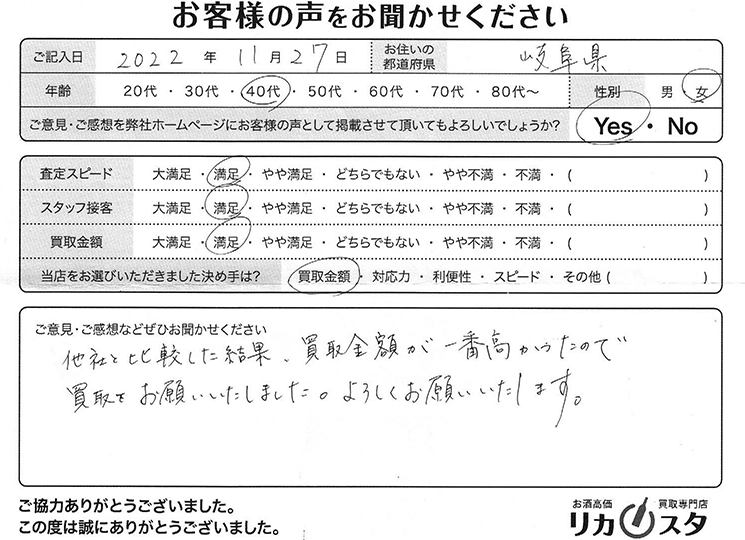 お客様の声をお聞かせください
ご記入日 2022 年 11 月 27 日 お住いの都道府県 岐阜県
年齢 20代 ・ 30代 ・ 40代 ・ 50代 ・ 60代 ・ 70代 ・ 80代～ 性別 男 女
ご意見・ご感想を弊社ホームページにお客様の声として掲載させて頂いてもよろしいでしょうか? Yes ・ No
査定スピード 大満足 ・ 満足 ・ やや満足 ・ どちらでもない ・ やや不満 ・ 不満 ・ ( )
スタッフ接客 大満足 ・ 満足 ・ やや満足 ・ どちらでもない ・ やや不満 ・ 不満 ・ ( )
買取金額 大満足 ・ 満足 ・ やや満足 ・ どちらでもない ・ やや不満 ・ 不満 ・ ( )
当店をお選びいただきました決め手は? 買取金額 ・ 対応力 ・ 利便性 ・ スピード ・ その他 ( )
ご意見・ご感想などぜひお聞かせください
他社と比較した結果、買取金額が一番高かったので
買取をお願いいたしました。よろしくお願いいたします。
ご協力ありがとうございました。
この度は誠にありがとうございました。
お酒高価 買取専門店
リカスタ